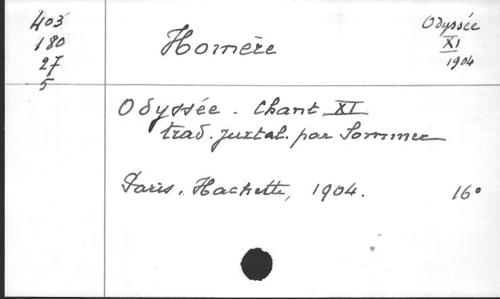 403
180
27
5
Homère
Odyssée
XI
1904
Odyssée. Chant XI
trad. juxtal. par Sommer
Paris, Hachette, 1904. 16°